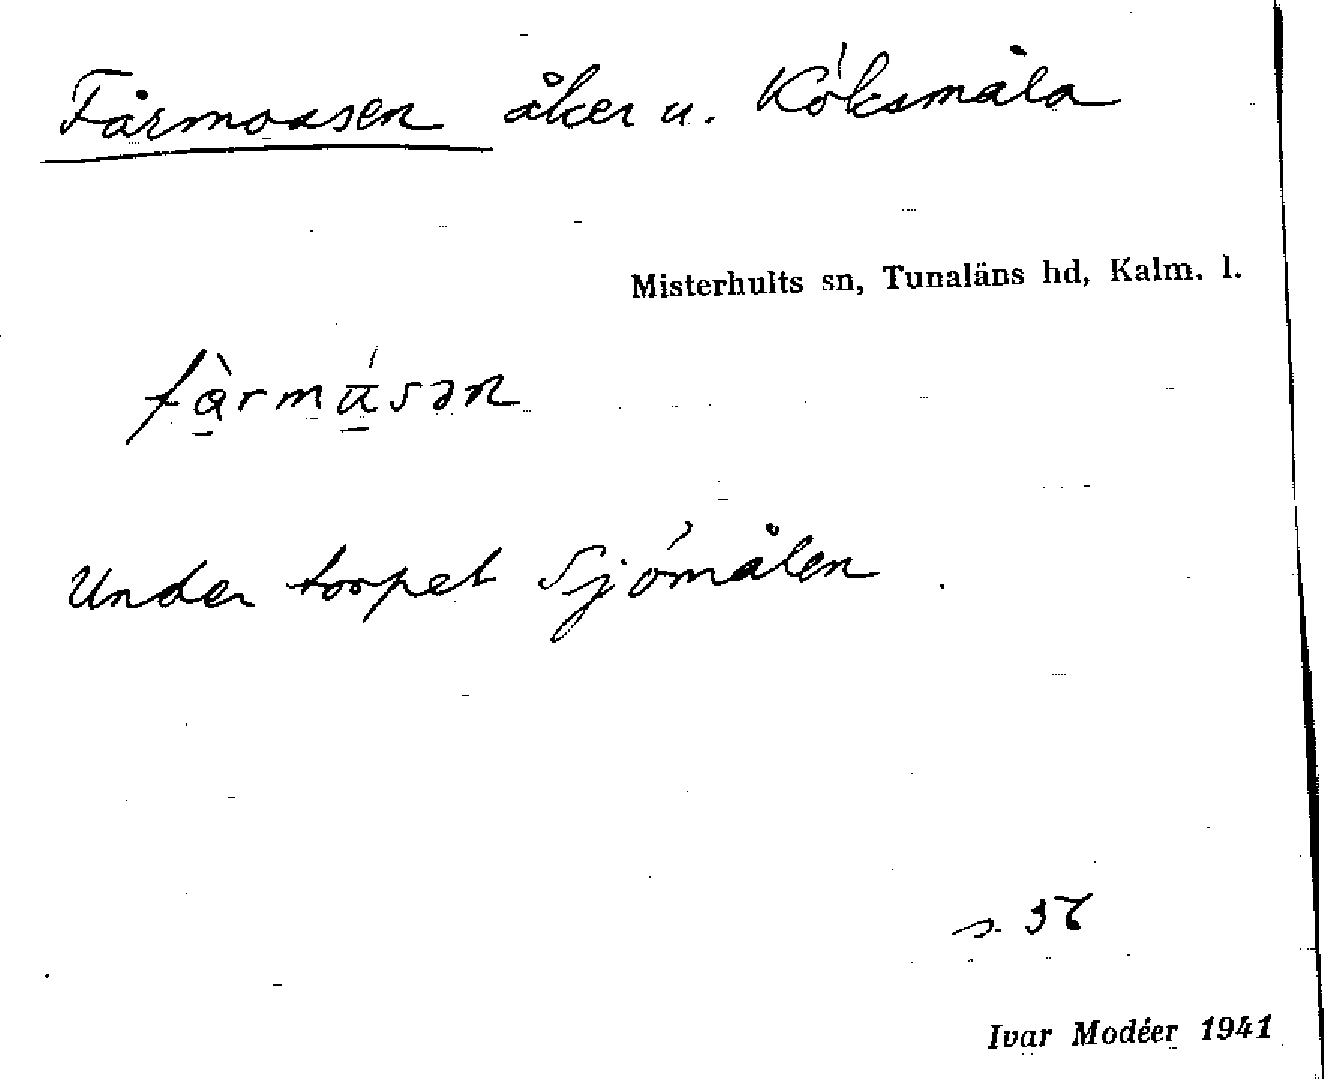 Fårmossen åker u. Köksmåla
Misterhults sn, Tunaläns hd, Kalm. l.
fàrmásən
Under torpet Sjömålen
s. 56
Ivar Modéer 1941